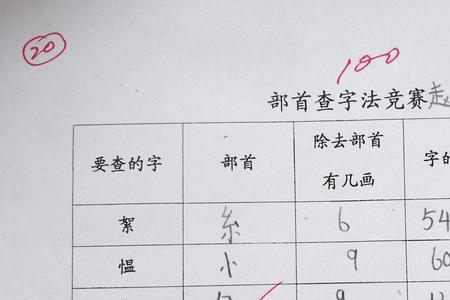 20
100
部首查字法竞赛
要查的字 部首 除去部首有几画 字的
絮 糸 6 54
愠 忄 9 60